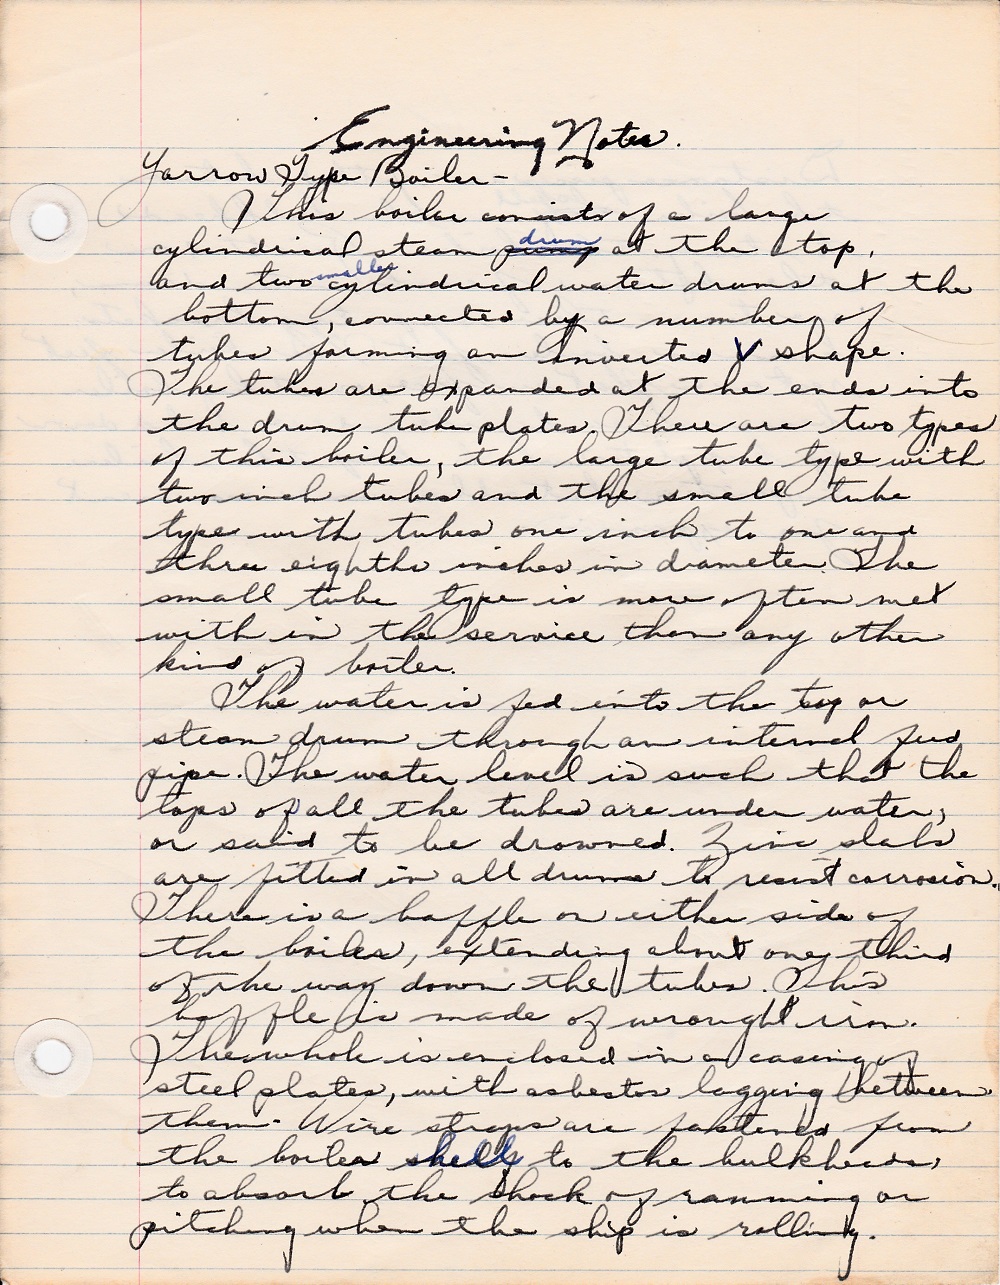 Engineering Notes.
Yarrow Type Boiler-
This boiler consists of a large
cylindrical steam pump drum at the top,
and two smaller cylindrical water drums at the
bottom, connected by a number of
tubes forming an inverted V shape.
The tubes are expanded at the ends into
the drum tube plates. There are two types
of this boiler, the large tube type with
two inch tubes and the small tube
type with tubes one inch to one and
three eighths inches in diameter. The
small tube type is more often met
with in the service than any other
kind of boiler.
The water is fed into the top or
steam drum through an internal feed
pipe. The water level is such that the
tops of all the tubes are under water,
or said to be drowned. Zinc slabs
are fitted in all drums to resist corrosion.
There is a baffle on either side of
the boiler, extending about one third
of the way down the tubes. This
baffle is made of wrought iron.
The whole is enclosed in a casing of
steel plates, with asbestos lagging between
them. Wire straps are fastened from
the boiler shells to the bulkheads,
to absorb the shock of ramming or
pitching when the ship is rolling.